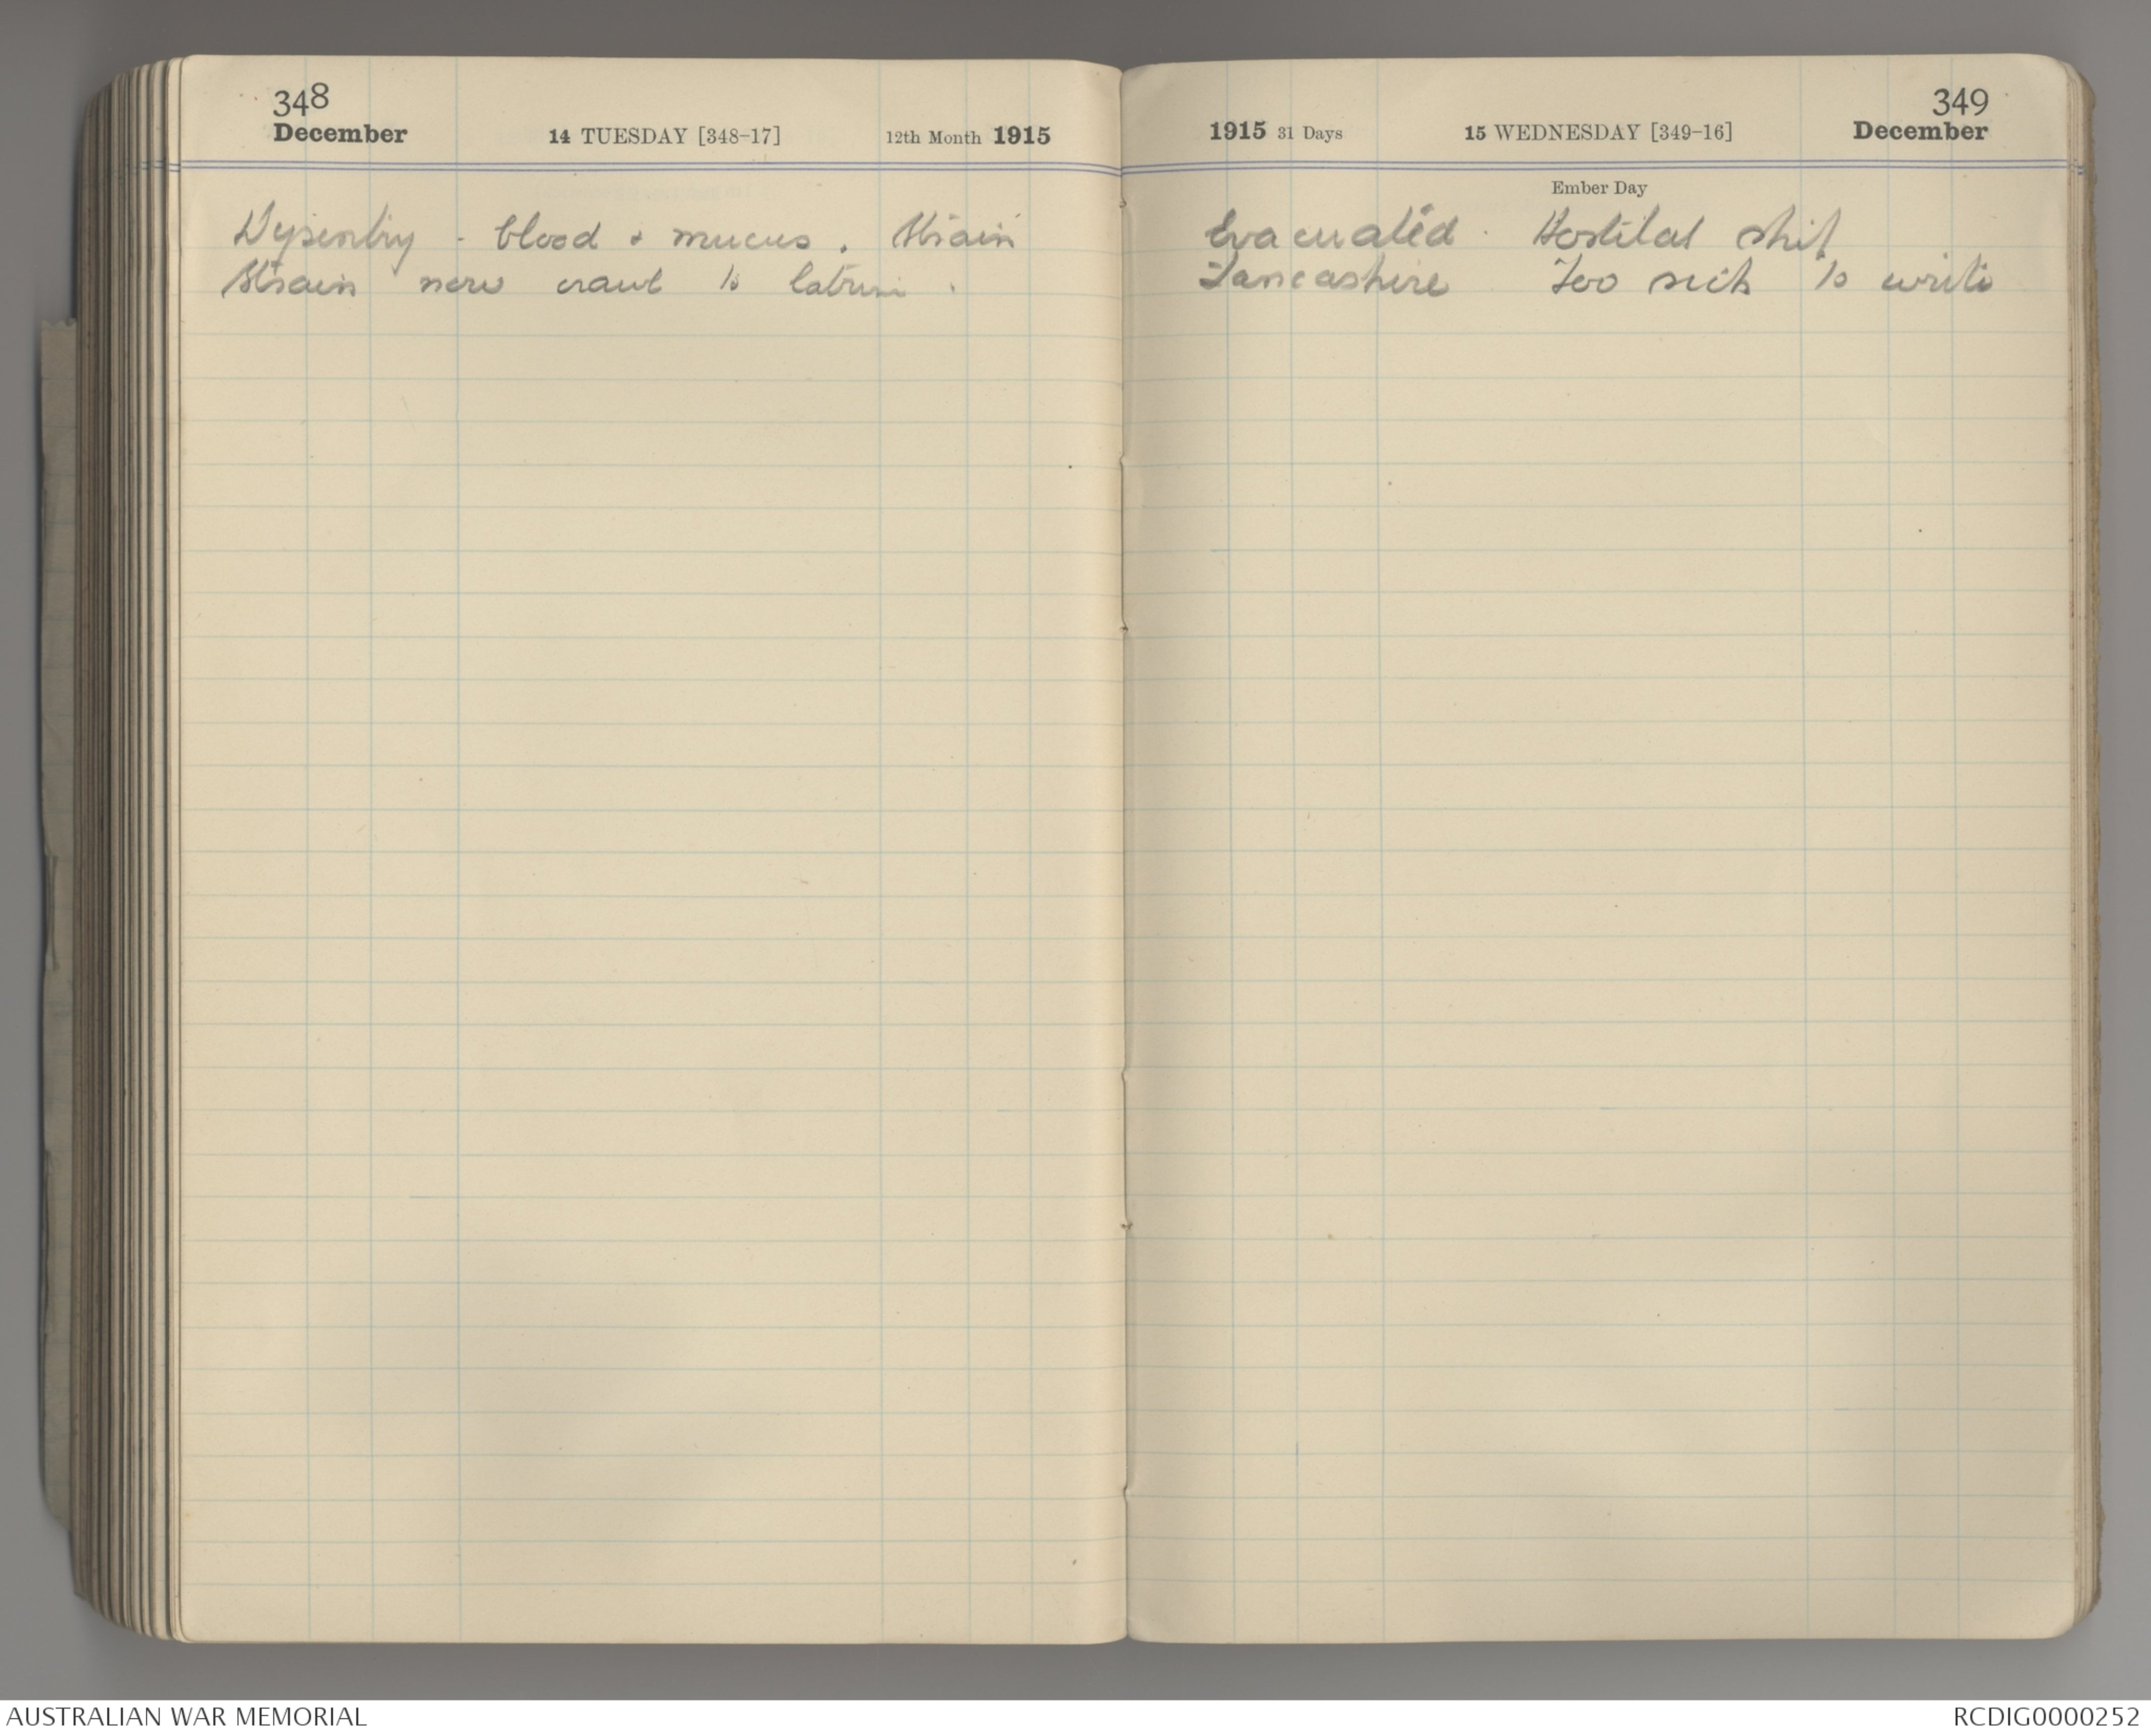 348
December 14 TUESDAY [348-17] 12th Month 1915
Dysentry - blood & mucus. Strain
Strain now crawl to latrine.
349
1915 31 Days 15 WEDNESDAY [349-16] December
Ember Day
Evacuated. Hospital ship
Lancashire Too sick to write
AUSTRALIAN WAR MEMORIAL
RCDIG0000252